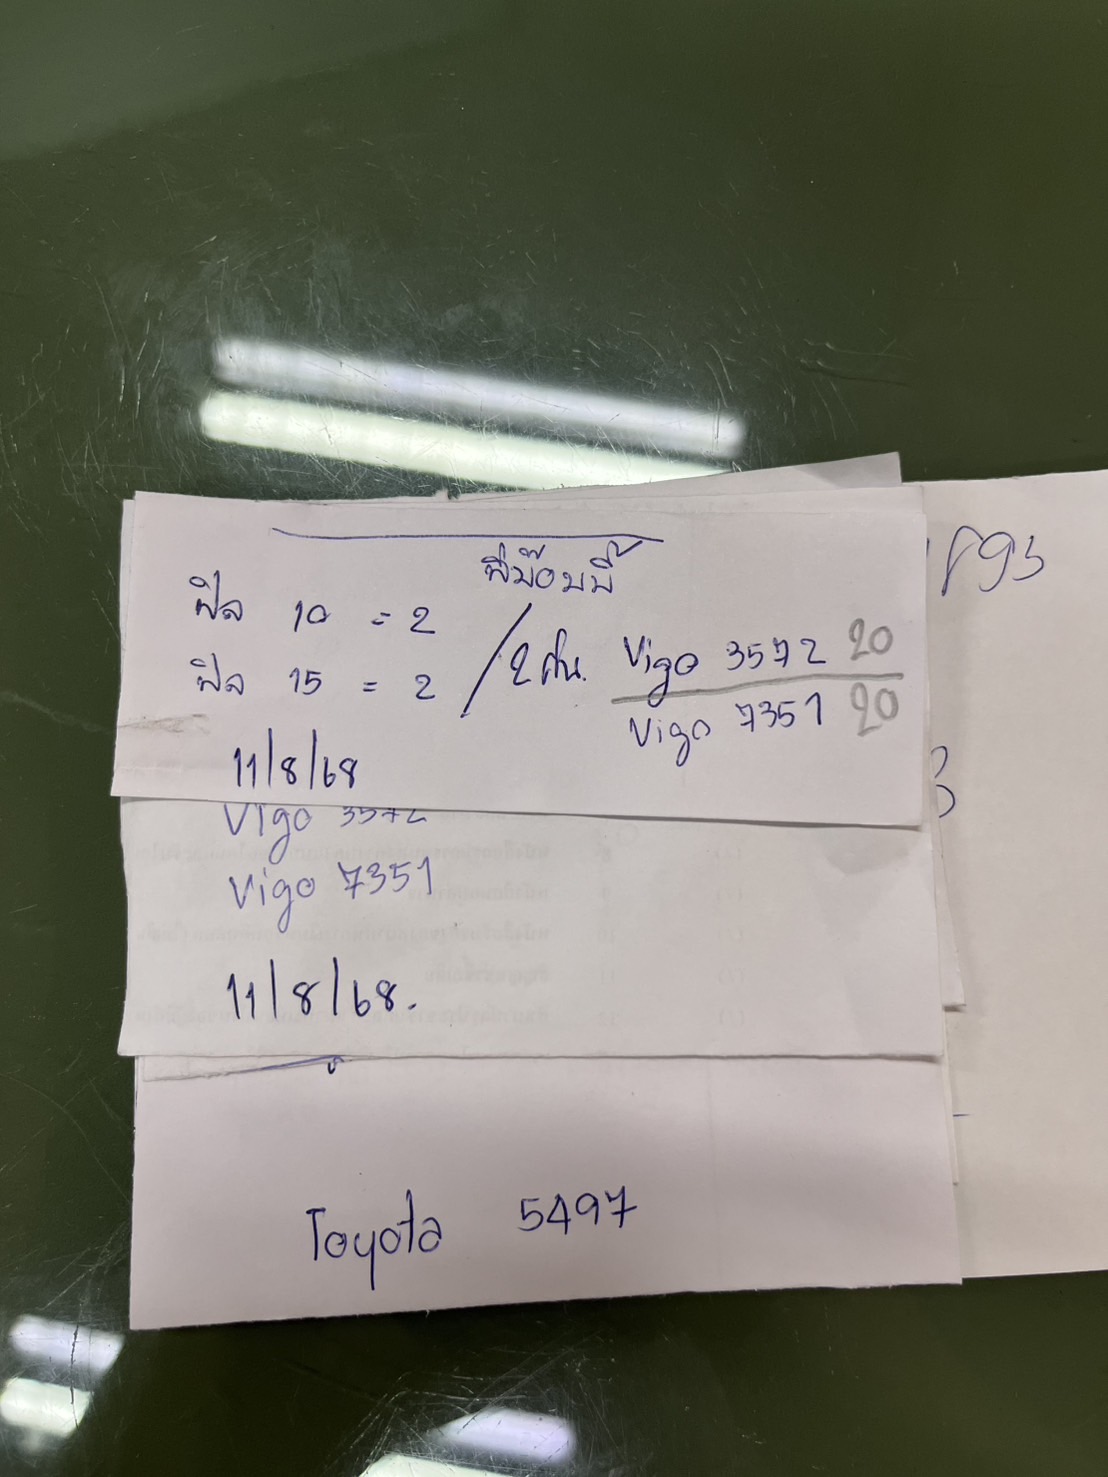 พี่บ๊อบบี้
ฟิล 10 = 2
ฟิล 15 = 2 / 2 คัน. Vigo 3572 20
Vigo 7351 20
11/8/68
Vigo 3572
Vigo 7351
11/8/68.
Toyota 5497
893
3